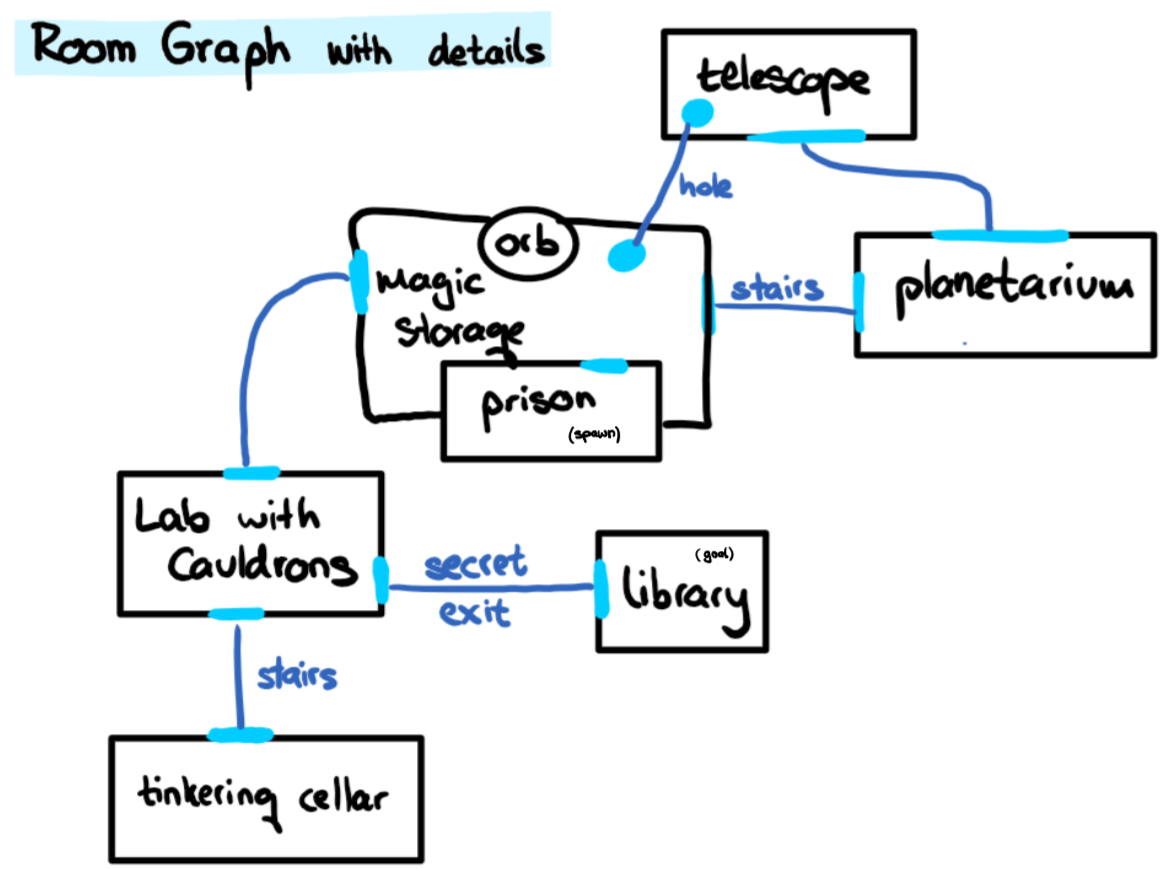 Room Graph with details
telescope
hole
orb
magic
storage
stairs
planetarium
prison
(spawn)
Lab with
Cauldrons
secret
exit
(goal)
library
stairs
tinkering cellar